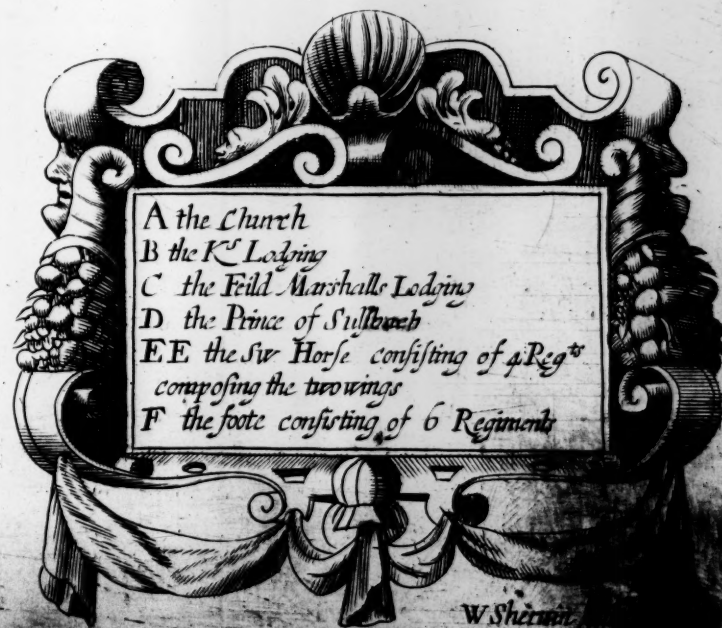 A the Church
B the Ks Lodging
C the Feild Marshalls Lodging
D the Prince of Sulsbach
EE the Sw Horse consisting of 4 Regts
composing the two wings
F the foote consisting of 6 Regiments
W Sherwin